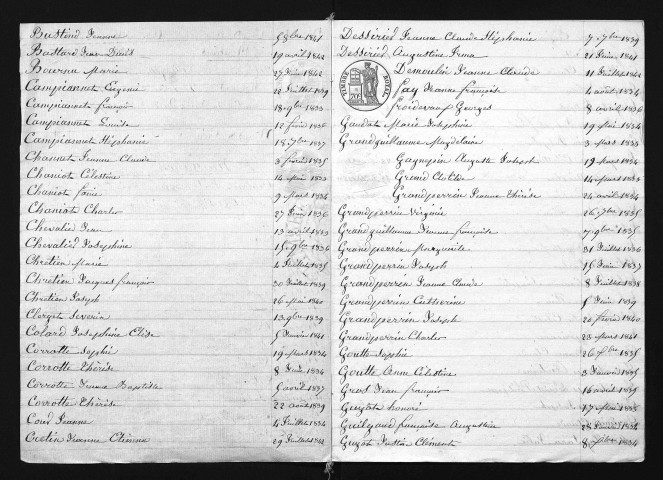 Bustind Jeanne 5 8bre 1841
Bustard Jean Denis 19 avril 1842
Bourun Marie 27 Juin 1842
Campiannet Eugenie 12 Juillet 1829
Campiannet françois 18 9bre 1833
Campiannet Louise 12 février 1836
Campiannet Stéphanie 18 7bre 1837
Chasnet Jeanne Claude 3 février 1835
Chaniot Célestine 14 Mai 1833
Chaniot 9 Mars 1834
Chaniot Charles 27 Juin 1836
Chevalié Jean 13 avril 1833
Chevalié Joséphine 15 9bre 1836
Chrétien Marie 4 Juillet 1835
Chrétien Jacques françois 30 Juillet 1839
Chrétien Joseph 26 Mai 1840
Clerget Séverin 13 9bre 1839
Colard Joséphine Elise 5 Janvier 1841
Corrotte Sophie 19 Mars 1834
Corrotte Thérèse 8 1834
Corrotte Jeanne Baptiste 5 avril 1837
Corrotte Thérèse 22 août 1839
Cour Jeanne 4 Juillet 1834
Cretin Jeanne Etienne 29 Juillet 1842
Desseried Jeanne Claude Stéphanie 7 7bre 1839
Desseried Augustine Irma 21 Juin 1841
Demoulin Jeanne Claude 11 Juillet 1842
TIMBRE ROYAL
Fay Jeanne françoise 4 août 1834
froidevaux Georges 8 avril 1836
Gaudat Marie Joséphine 19 Mai 1834
Grandguillaume Magdelaine 3 Mars 1833
Gagnepin Auguste Joseph 19 Mars 1834
Girard Clotilde 14 Mars 1833
Grandperrin Jeanne Thérèse 24 avril 1834
Grandperrin Virginie 26 7bre 1835
Grandguillaume Jeanne françoise 7 9bre 1835
Grandperrin Marguerite 31 Juillet 1836
Grandperrin Joseph 15 Juin 1837
Grandperrin Jeanne Claude 8 Juillet 1838
Grandperrin Catherine 5 Juin 1839
Grandperrin Joseph 20 février 1840
Grandperrin Charles 23 Mars 1841
Goutte Sophie 26 1835
Goutte Anne Célestine 3 Janvier 1835
Gros Jean françois 16 avril 1839
Guyot honoré 17 Mai 1835
Guilgaud françoise Augustine 28 1834
Guyot Justin Clément 8 1834